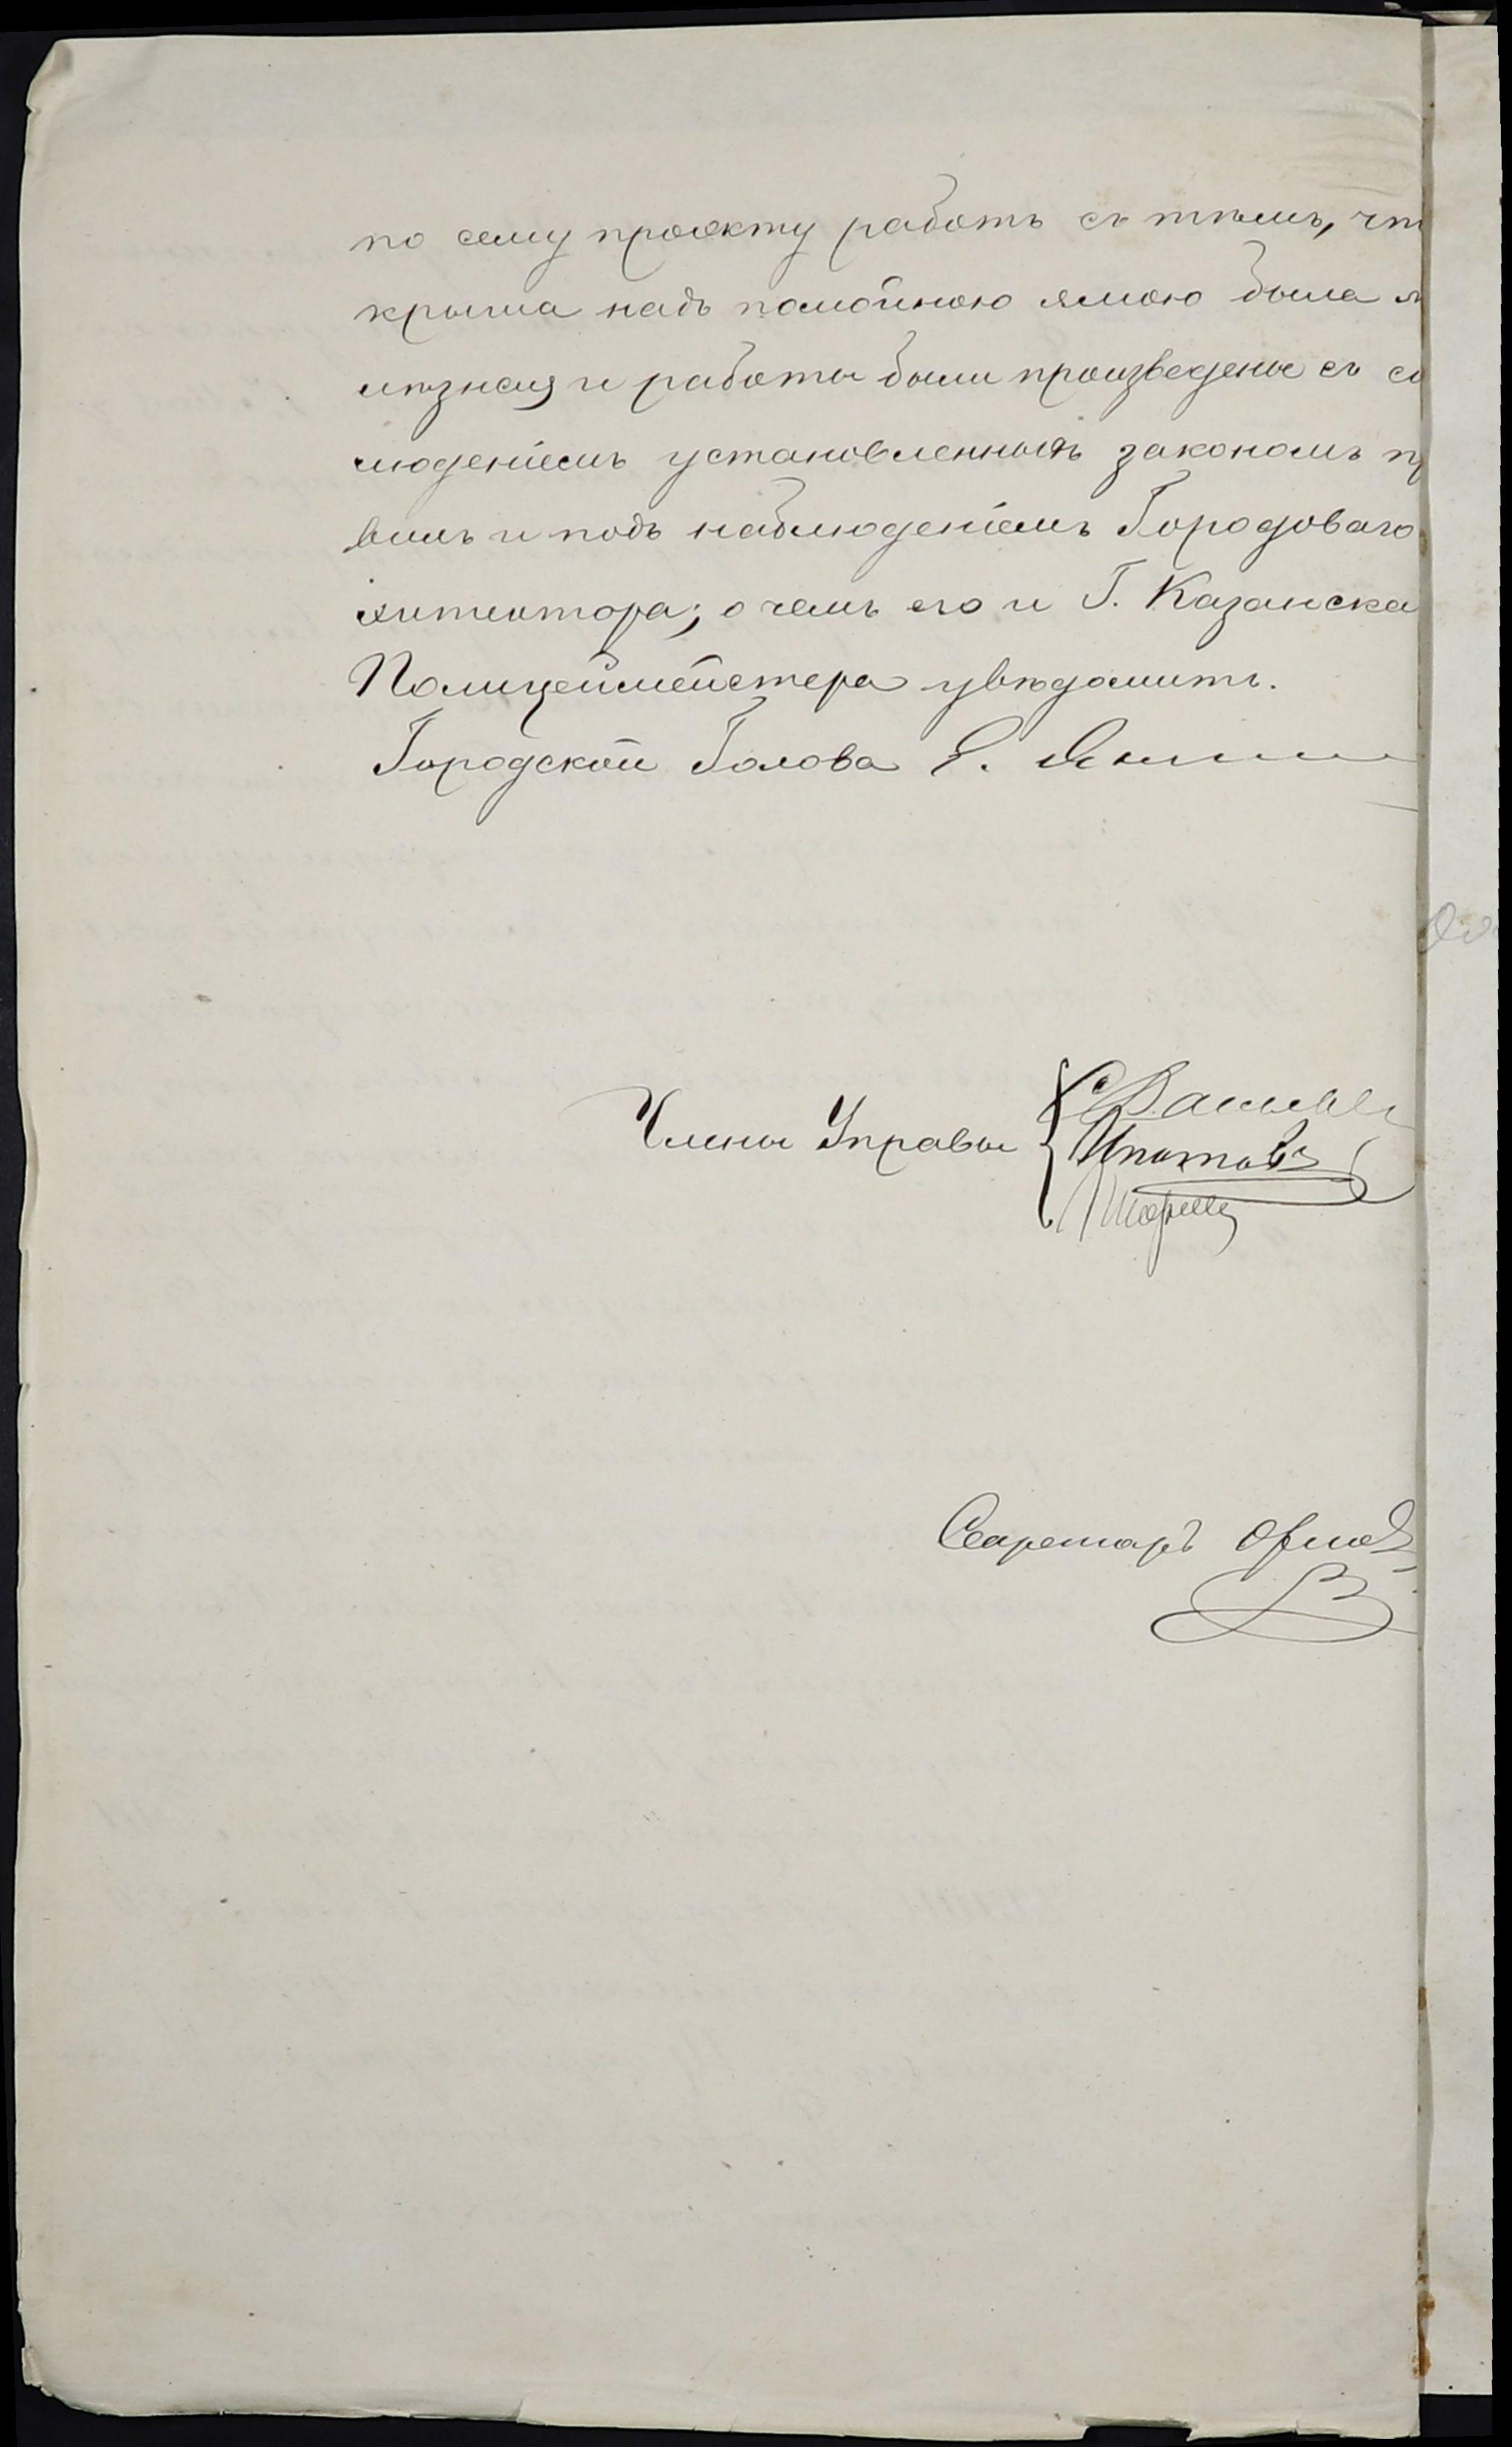 по сему проэкту работъ съ тѣмъ, чт
крыша надъ помойною ямою была ж
лѣзная и работы были произведены съ со
люденіемъ установленныхъ закономъ пр
вилъ и подъ наблюденіемъ Городоваго
хитектора; о чемъ его и Г. Казанска
Полицеймейстера увѣдомить.
Городской Голова
Члены Управы
Ипатовъ
Секретарь Орлов